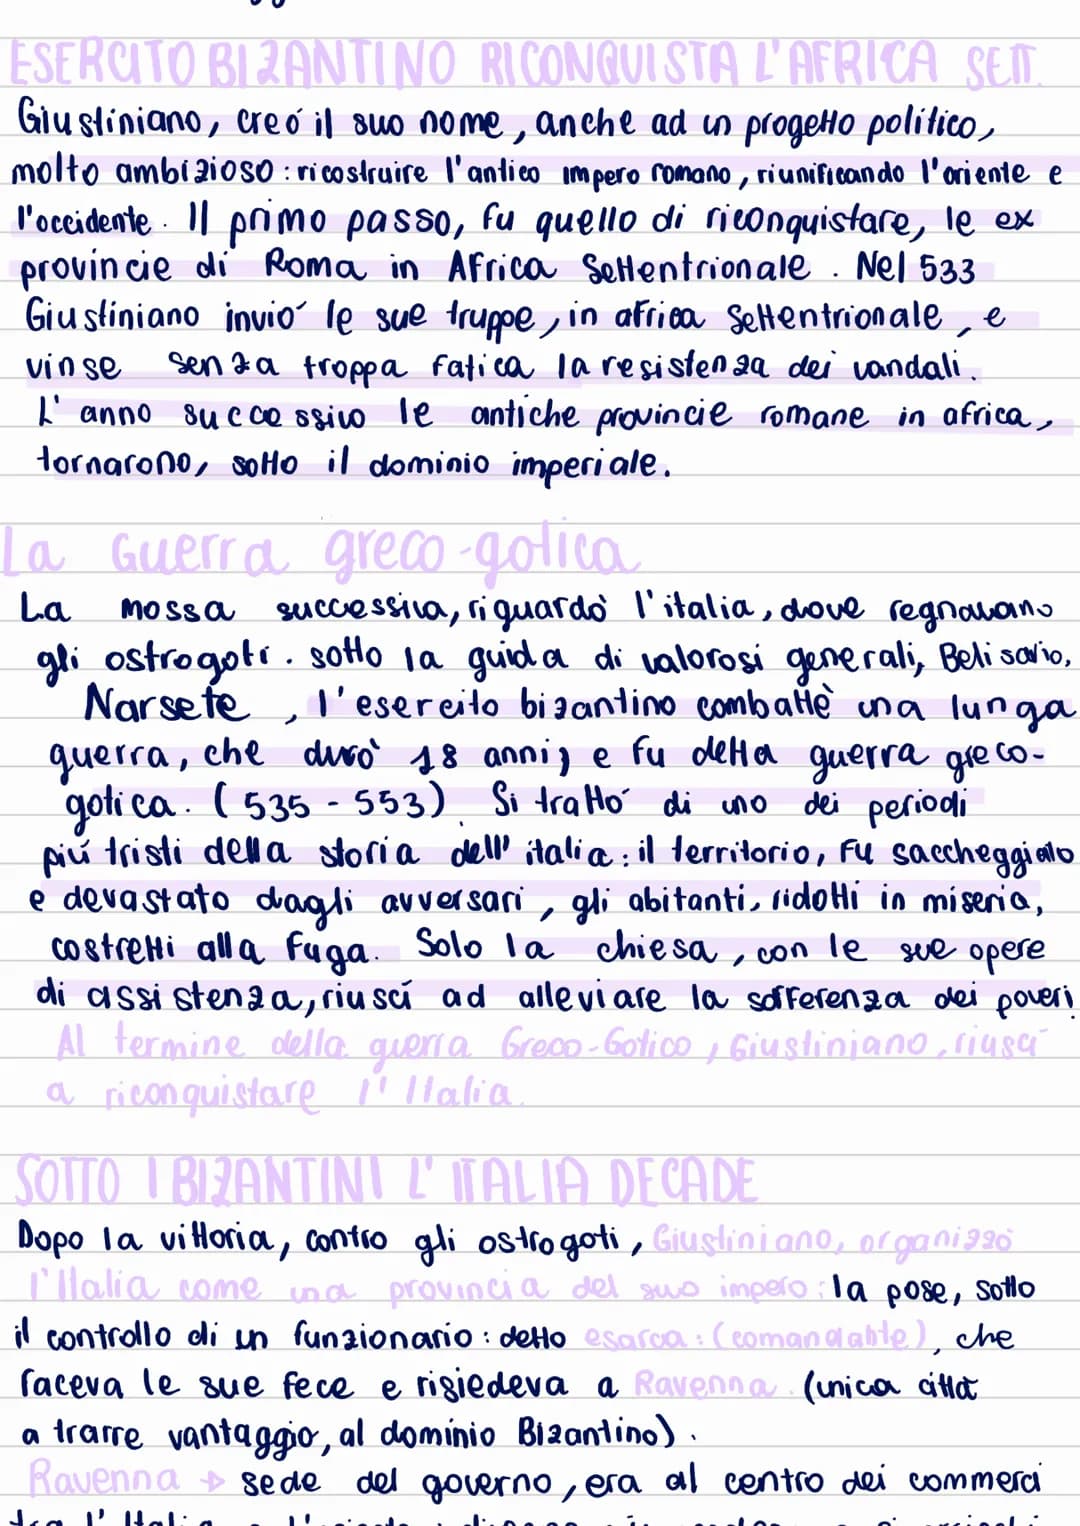 ESERCITO BIZANTINO RICONQUISTA L'AFRICA SETT.
Giustiniano, creó il suo nome, anche ad un progetto politico,
molto ambizioso: ricostruire l'antico impero romano, riunificando l'oriente e
l'occidente. Il primo passo, fu quello di riconquistare, le ex
provincie di Roma in Africa Settentrionale. Nel 533
Giustiniano invió le sue truppe, in africa Settentrionale, e
vinse senza troppa fatica la resistenza dei vandali.
L'anno successivo le antiche provincie romane in africa,
tornarono, sotto il dominio imperiale.
La Guerra greco-gotica
La mossa successiva, riguardò l'italia, dove regnavano
gli ostrogoti. sotto la guida di valorosi generali, Belisario,
Narsete, l'esercito bizantino combattè una lunga
guerra, che durò 18 anni; e fu detta guerra greco-
gotica. (535 - 553). Si trattó di uno dei periodi
piú tristi della storia dell' italia: il territorio, fu saccheggiato
e devastato dagli avversari, gli abitanti, ridotti in miseria,
costretti alla fuga. Solo la chiesa, con le sue opere
di assistenza, riuscí ad alleviare la sofferenza dei poveri
Al termine della guerra Greco-Gotico, Giustiniano, riuscí
a riconquistare l'Italia.
SOTTO I BIZANTINI L'ITALIA DECADE
Dopo la vittoria, contro gli ostrogoti, Giustiniano, organizzò
l'Italia come una provincia del suo impero: la pose, sotto
il controllo di un funzionario: detto esarca: (comandante), che
faceva le sue fece e risiedeva a Ravenna. (unica città
a trarre vantaggio, al dominio Bizantino).
Ravenna → sede del governo, era al centro dei commerci